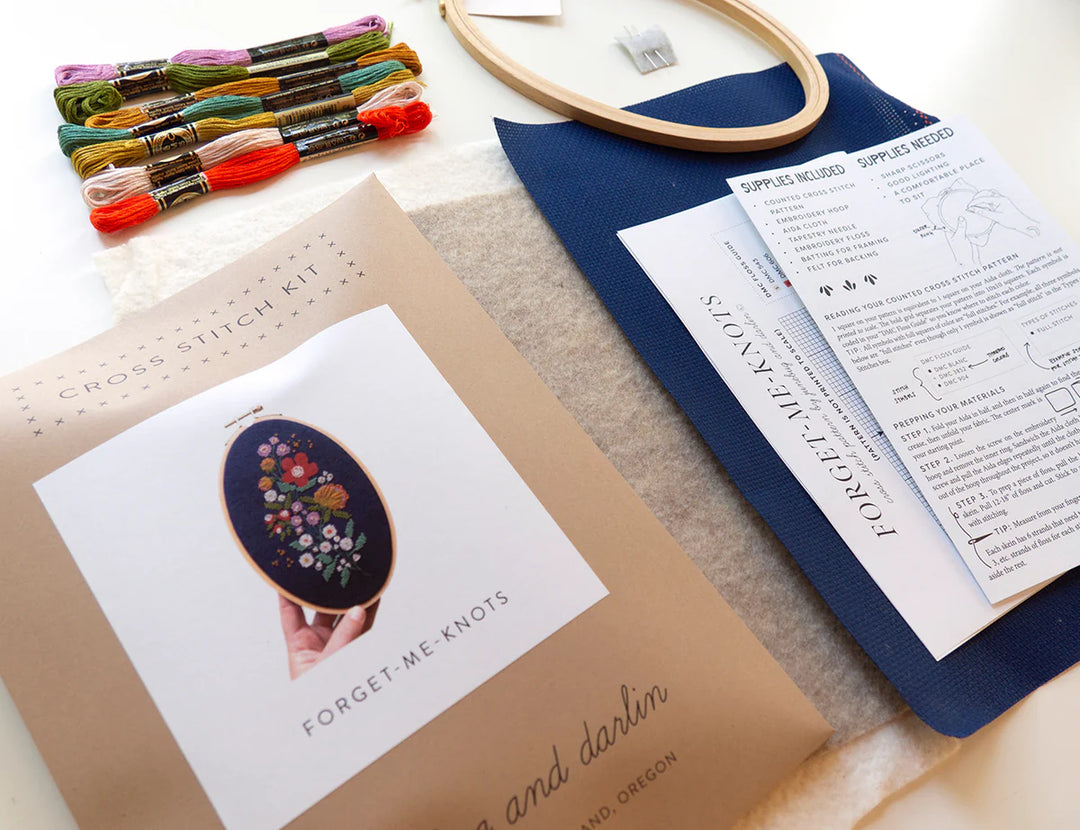 CROSS STITCH KIT
FORGET-ME-KNOTS
and darlin
AND, OREGON
DMC FLOSS GUIDE
DMC 543
DMC 606
(PATTERN IS NOT PRINTED TO SCALE)
FORGET-ME-KNOTS
cross stitch pattern by pumpkin and darlin ©
SUPPLIES INCLUDED
• COUNTED CROSS STITCH
PATTERN
• EMBROIDERY HOOP
• AIDA CLOTH
• TAPESTRY NEEDLE
• EMBROIDERY FLOSS
• BATTING FOR FRAMING
• FELT FOR BACKING
SUPPLIES NEEDED
• SHARP SCISSORS
• GOOD LIGHTING
• A COMFORTABLE PLACE
TO SIT
READING YOUR COUNTED CROSS STITCH PATTERN
1 square on your pattern is equivalent to 1 square on your Aida cloth. The pattern is not
printed to scale. The bold grid separates your pattern into 10x10 squares. Each symbol is
coded in your "DMC Floss Guide" so you know where to stitch each color.
TIP: All symbols with full squares of color are "full stitches." For example, all three symbols
below are "full stitches" even though only 1 symbol is shown as "full stitch" in the Types
Stitches box.
DMC FLOSS GUIDE
• DMC BLANC
• DMC 3852
• DMC 904
TYPES OF STITCHES
• FULL STITCH
PREPPING YOUR MATERIALS
STEP 1. Fold your Aida in half, and then in half again to find the
crease, then unfold your fabric. The center mark is
your starting point.
STEP 2. Loosen the screw on the embroidery
hoop and remove the inner ring. Sandwich the Aida cloth
screw and pull the Aida edges repeatedly until the cloth
out of the hoop throughout the project, so it doesn't
STEP 3. To prep a piece of floss, pull the
skein. Pull 12-18" of floss and cut. Stick to
with stitching.
TIP: Measure from your finger
Each skein has 6 strands that need
3, etc. strands of floss for each s
aside the rest.